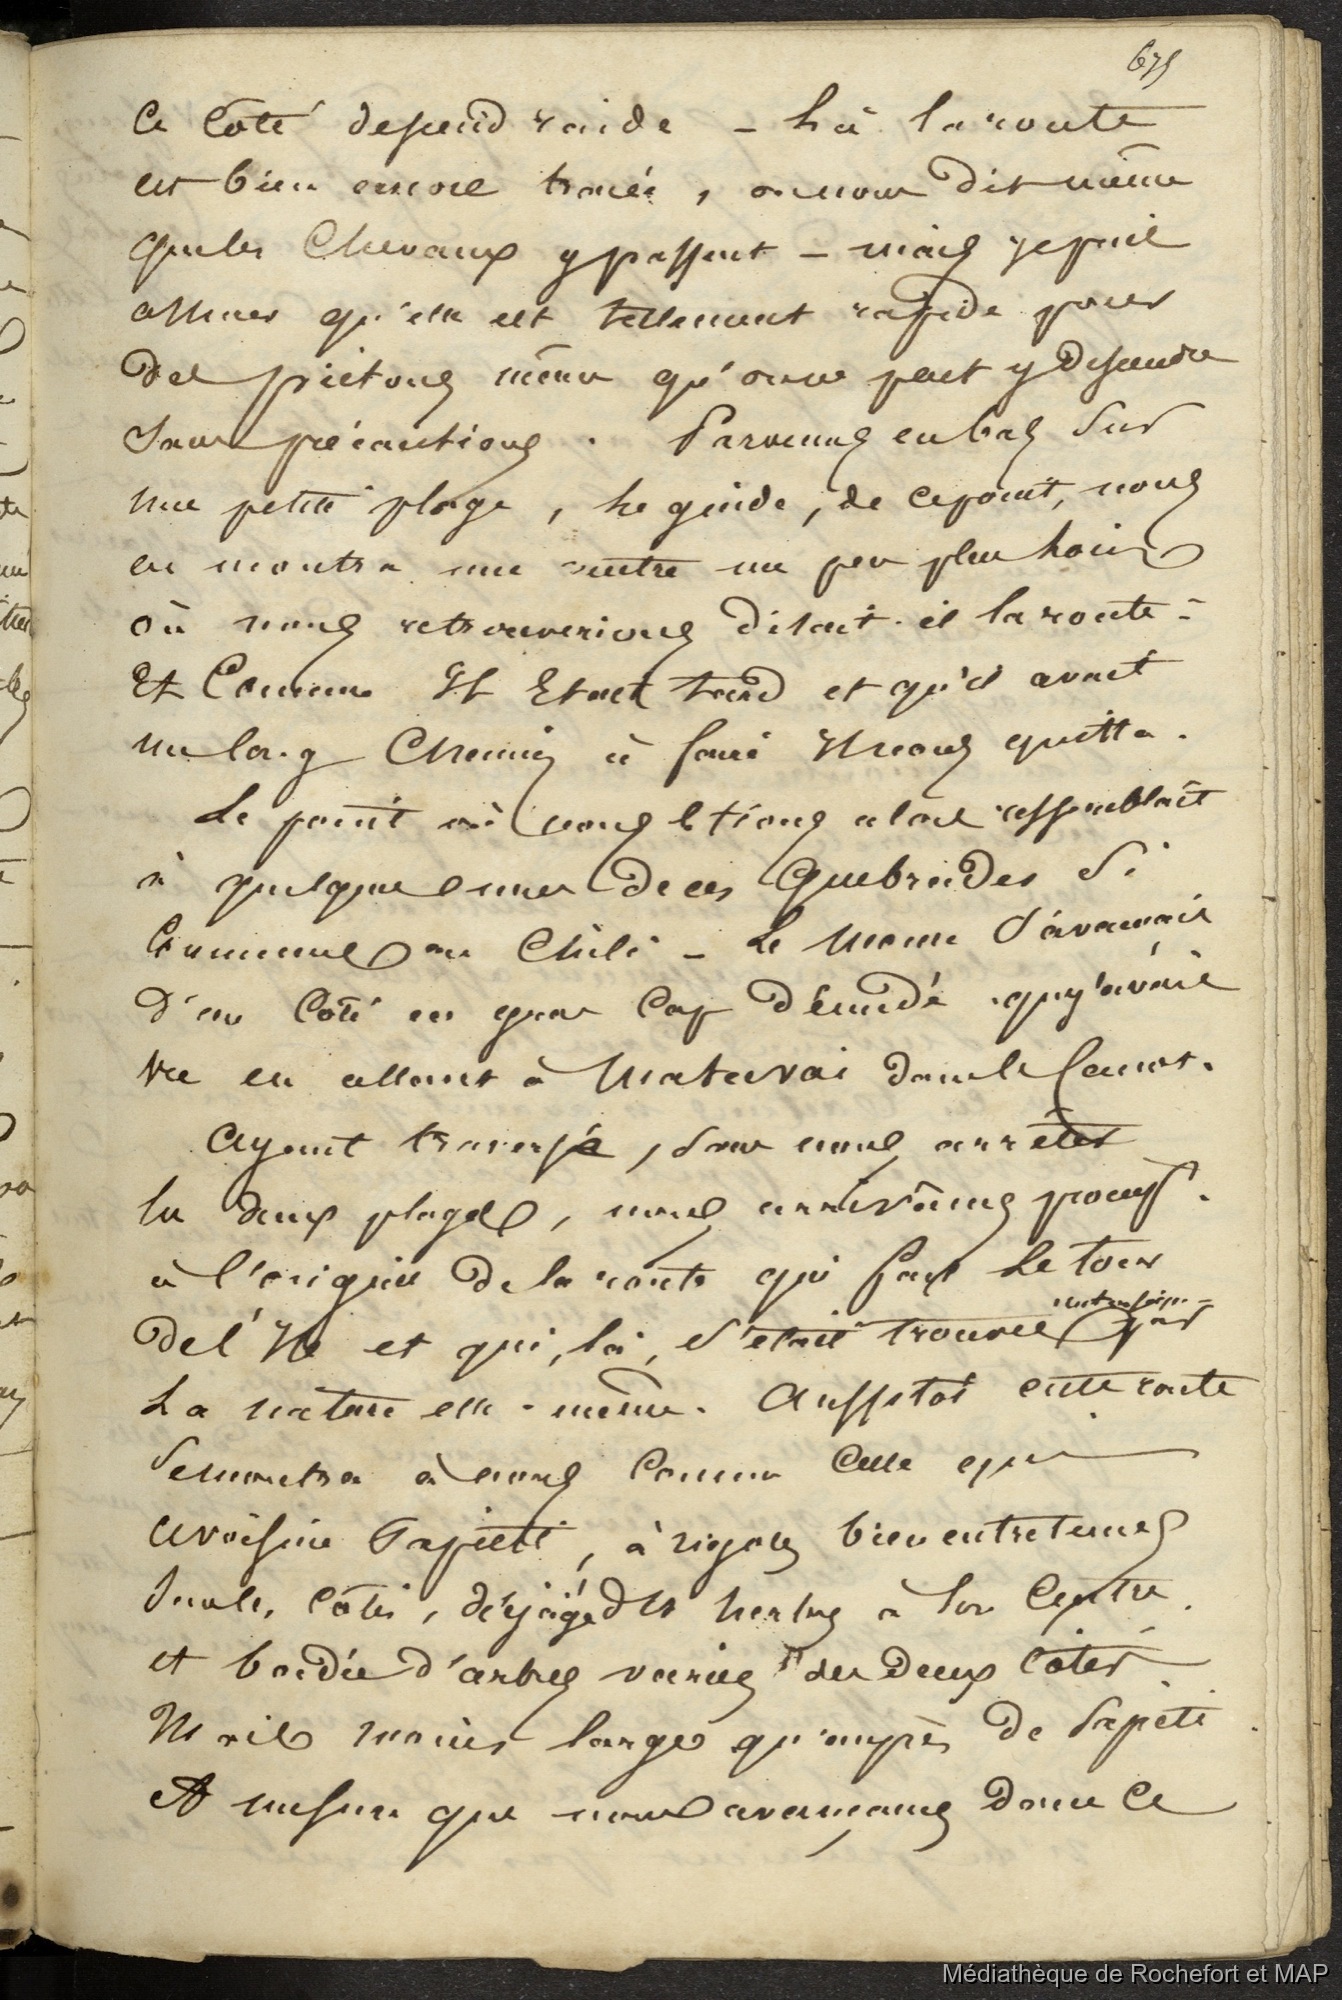 675
Ce Côté descend raide – Là la route
est bien encore tracée, on nous dit même
que les Chevaux y passent – mais je puis
assurer qu'elle est tellement rapide pour
des piétons même qu'on ne peut y descendre
sans précautions. Parvenus en bas sur
une petite plage, le guide, de ce point, nous
en montra une autre un peu plus loin
où nous retrouverions disait-il la route –
Et Comme Il Etait tard et qu'il avait
un long Chemin à faire Il nous quitta.
Le point où nous étions alors ressemblait
à quelques unes de ces Quebrades si
Communes au Chili – Le Morne s'avançait
d'un Côté en gros Cap dénudé que j'avais
vu en allant à Matavai dans le Canot.
Ayant traversé, sans nous arrêter
les deux plages, nous arrivâmes
à l'origine de la route qui fait Le tour
de l'Ile et qui, là, s'était trouvée par
La nature elle-même. Aussitôt cette route
Se montra à nous Comme Celle qui
avoisine Papeïti, à rigoles bien entretenues
sur les Côtés, dégagée des herbes à son Centre
et bordée d'arbres variés des deux Côtés
Mais moins large qu'auprès de Papeïti.
A mesure que nous avançames dans Ce
Médiathèque de Rochefort et MAP